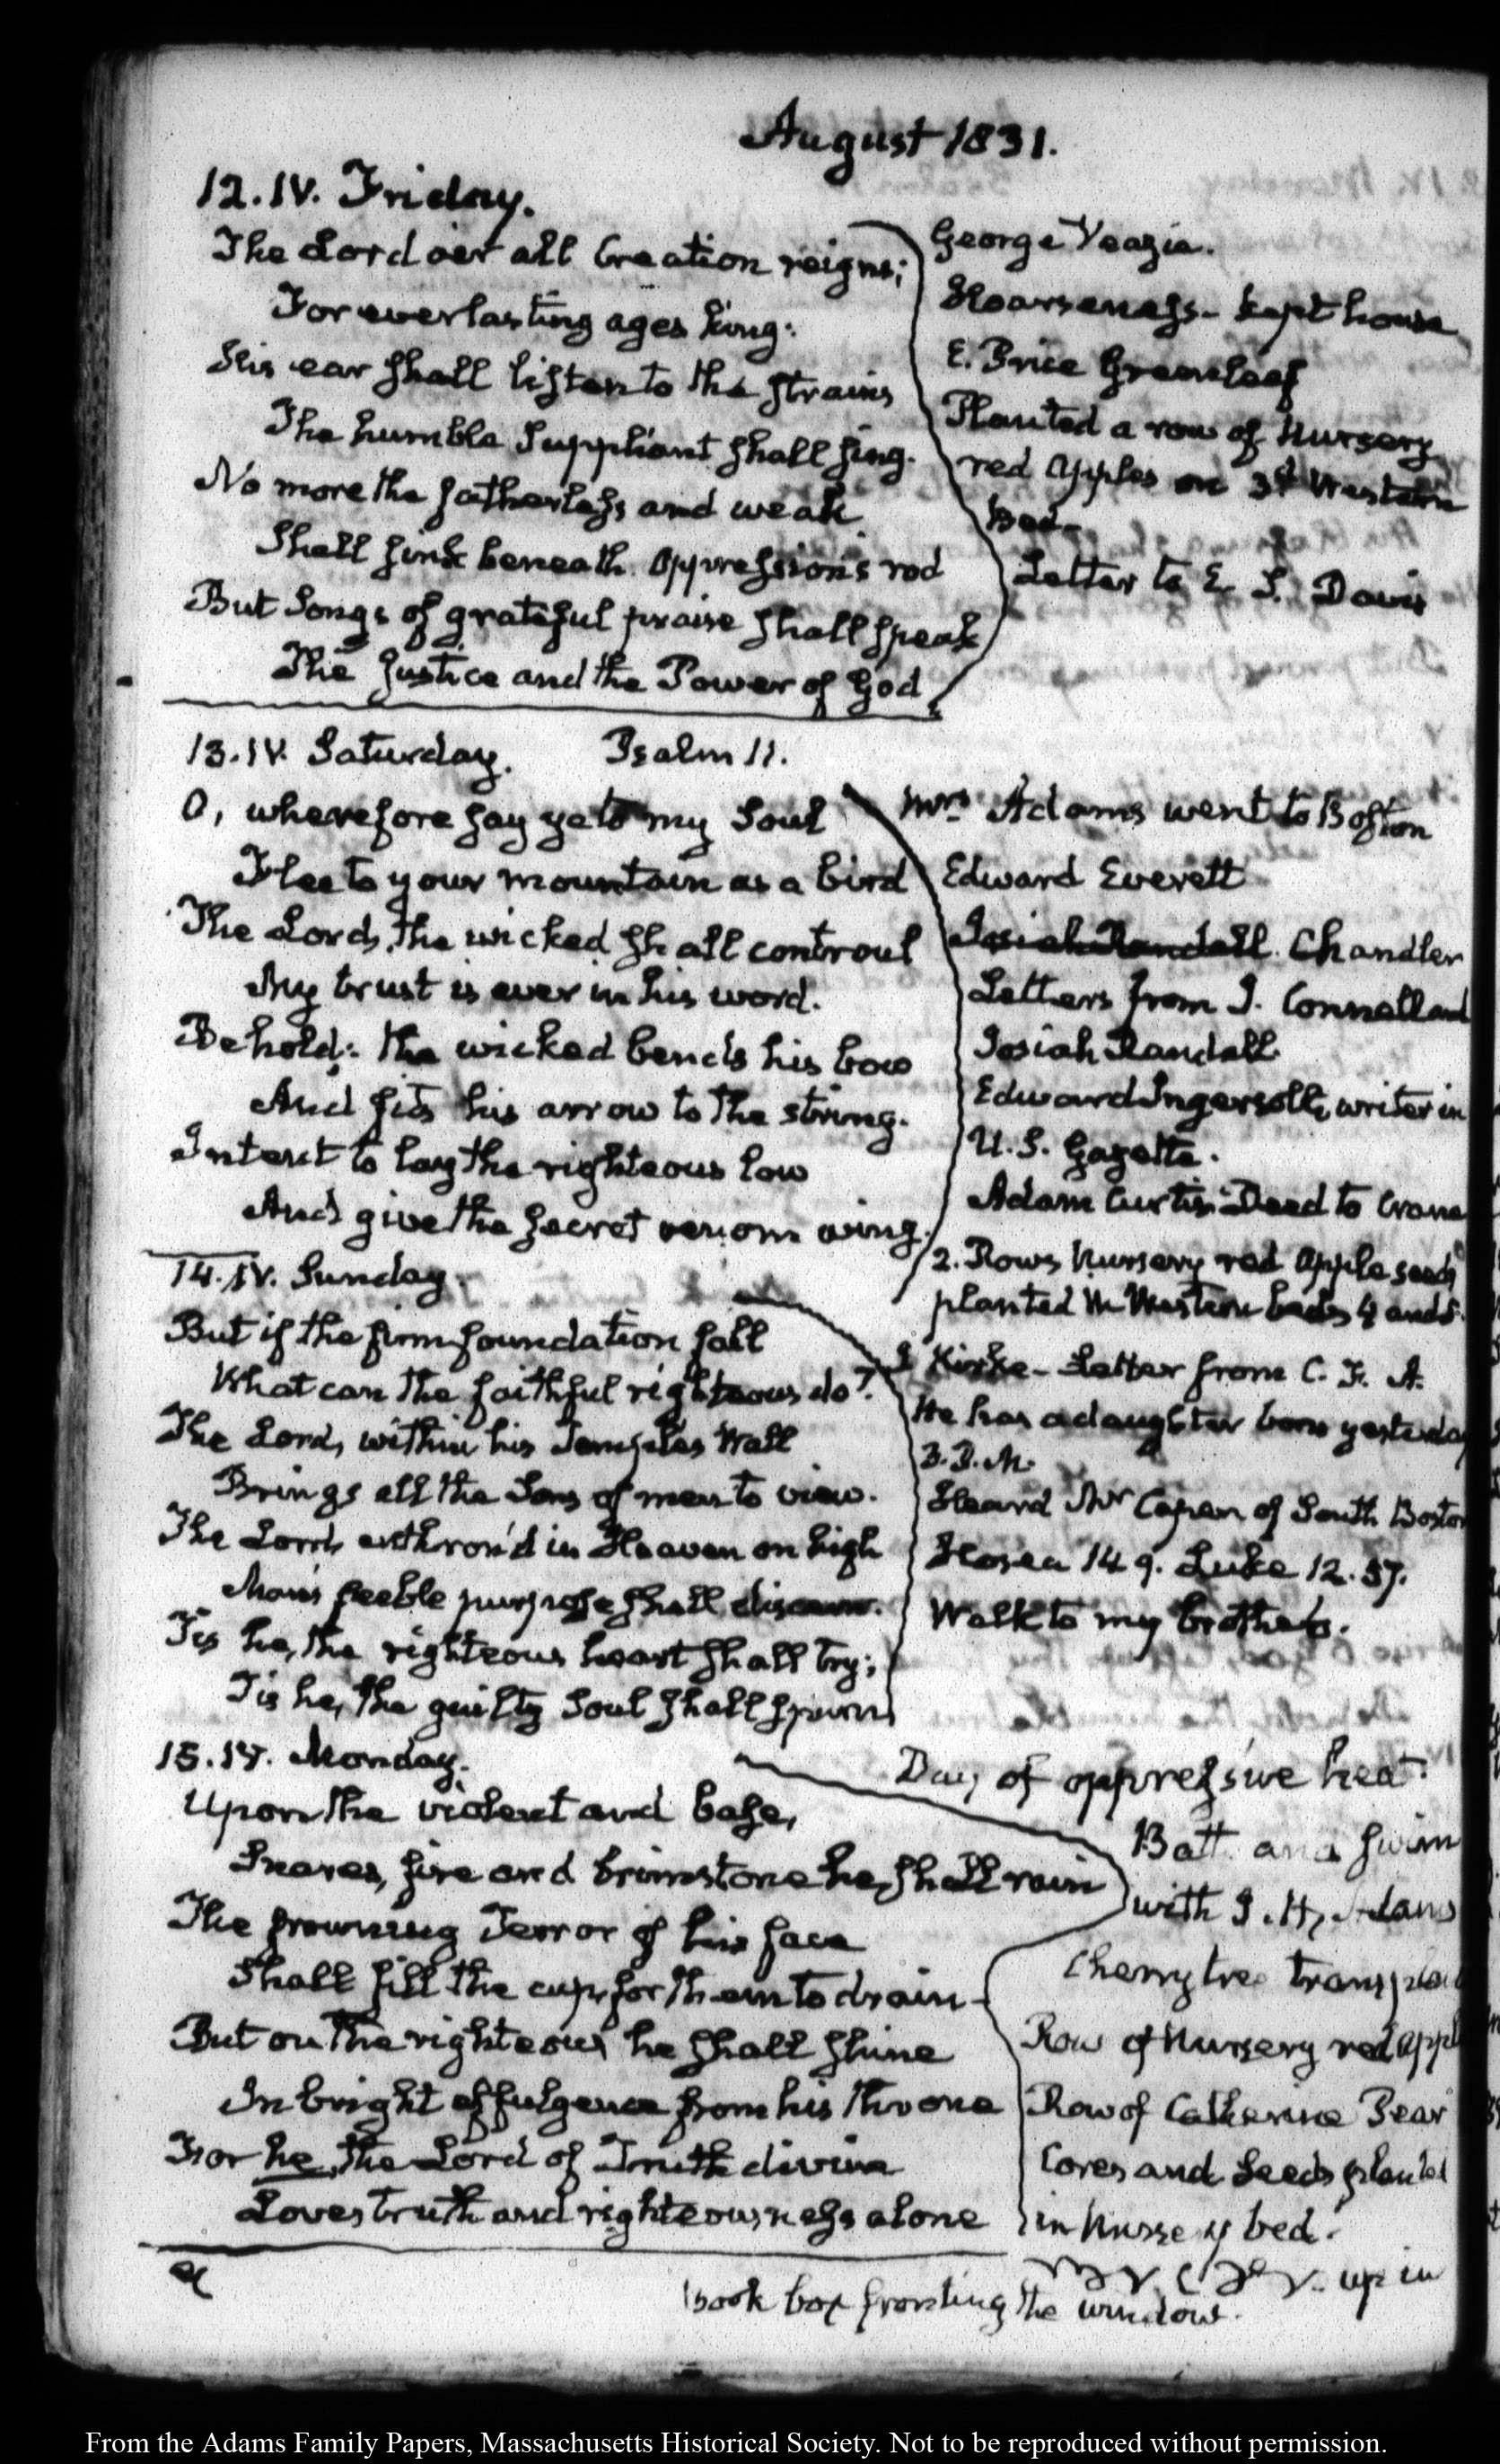 August 1831.
12. IV. Friday.
The Lord oer all Creation reigns;
For everlasting ages king:
His ear shall listen to the strains
The humble Suppliant shall sing.
No more the fatherless and weak
Shall sink beneath oppression's rod
But Songs of grateful praise shall speak
The Justice and the Power of God
George Veazie.
Hoarseness- kept house
E. Price Greenleaf
Planted a row of Nursery
red Apples on 3d Western
Bed-
Letter to E. S. Davis
13. IV. Saturday. Psalm 11.
O, wherefore say ye to my Soul
Flee to your mountain as a bird
The Lord, the wicked shall controul
My trust is ever in his word.
Behold: the wicked bends his bow
And fits his arrow to the string.
Intent to lay the righteous low
And give the secret venom wing.
Mrs Adams went to Boston
Edward Everett
Josiah Randall. Chandler
Letters from J. Connell and
Josiah Randall
Edward Ingersoll, writer in
U.S. Gazette.
Adam Curtis Deed to Crane
2. Rows Nursery red Apple seeds
planted in Western beds 4 and 5.
14. IV. Sunday.
But if the firm foundation fall
What can the faithful righteous do?
The Lord, within his Temples Wall
Brings all the Sons of men to view.
The Lord, enthron'd in Heaven on high
Man's feeble purpose shall discern.
Tis he, the righteous heart shall try;
Tis he, the guilty Soul shall spurn
Kirke- Letter from C. F. A.
He has a daughter born yesterday
Heard Mr Capen of South Boston
Hosea 14 9. Luke 12. 57.
Walk to my brothers.
15. IV. Monday.
Upon the violent and base,
Snares, fire and brimstone he shall rain
The frowning Terror of his face
Shall fill the cup for them to drain-
But on the righteous he shall shine
In bright effulgence from his throne
For he, the Lord of Truth divine
Loves truth and righteousness alone
Day of oppressive heat.
Bath and swim
with J. H. Adams
Cherry tree transplan
Row of Nursery red appl
Row of Catherine Pear
Cores and Seeds planted
in Nursery bed.
up in
Book box fronting the window.
From the Adams Family Papers, Massachusetts Historical Society. Not to be reproduced without permission.